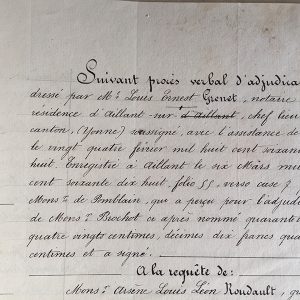 Suivant procès verbal d'adjudica
dressé par Mᵉ Louis Ernest Grenet, notaire
résidence d'Aillant-sur d'Aillant, chef lieu
canton, (Yonne) soussigné, avec l'assistance de
le vingt quatre février mil huit cent soixan
huit. Enregistré à Aillant le six Mars mil
cent soixante dix huit, folio 55, verso case 7.
Monsʳ de Pomblain, qui a perçu pour l'adjud
de Monsʳ Brochot ci après nommé quarante
quatre vingts centimes, décimes dix francs qua
centimes et a signé.
A la requête de:
Monsʳ Arsène Louis Léon Roudault, qu